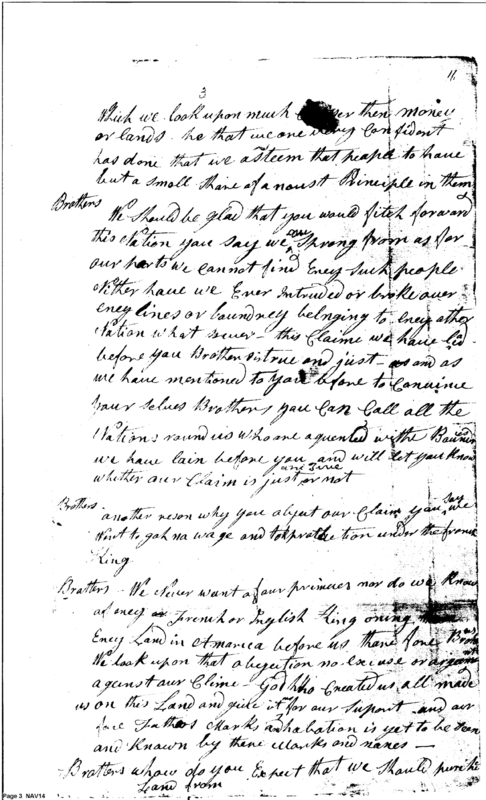 11
3
Which we look upon much then money
or lands - he that we are very Confident
has done that we asteem that peaple to have
but a small share of a noust Principle in them
Brothers
We should be glad that you would fitch forward
this Nation you say we are Sprong from as for
our parts we cannot find Eney Such people
Nither have we Ever Intruded or broke over
eney lines or boundrey belnging to eney other
Nation what sever - this Claime we have
before you Brothers is true and just - and as
we have mentioned to you before to Convince
your selves Brothers you Can Call all the
Nations round us who are aquented with the
we have lain before you and will let you Know
whether our Claim is just or not
Brothers
another reson why you abject our Claim you say we
Went to and under the french
King
Brothers - We Never went of our primues nor do we Know
of eney French or English King oning
Eney Land in America before us
We look upon that abjection no excuse or
against our Clime - God who Created us all made
us on this Land and give it for our Suport - and our
fore Fathers Marks inhabation is yet to be seen
and Known by thare Marks and names -
Brothers do you Expect that we Should
Land from
Page 3 NAV14